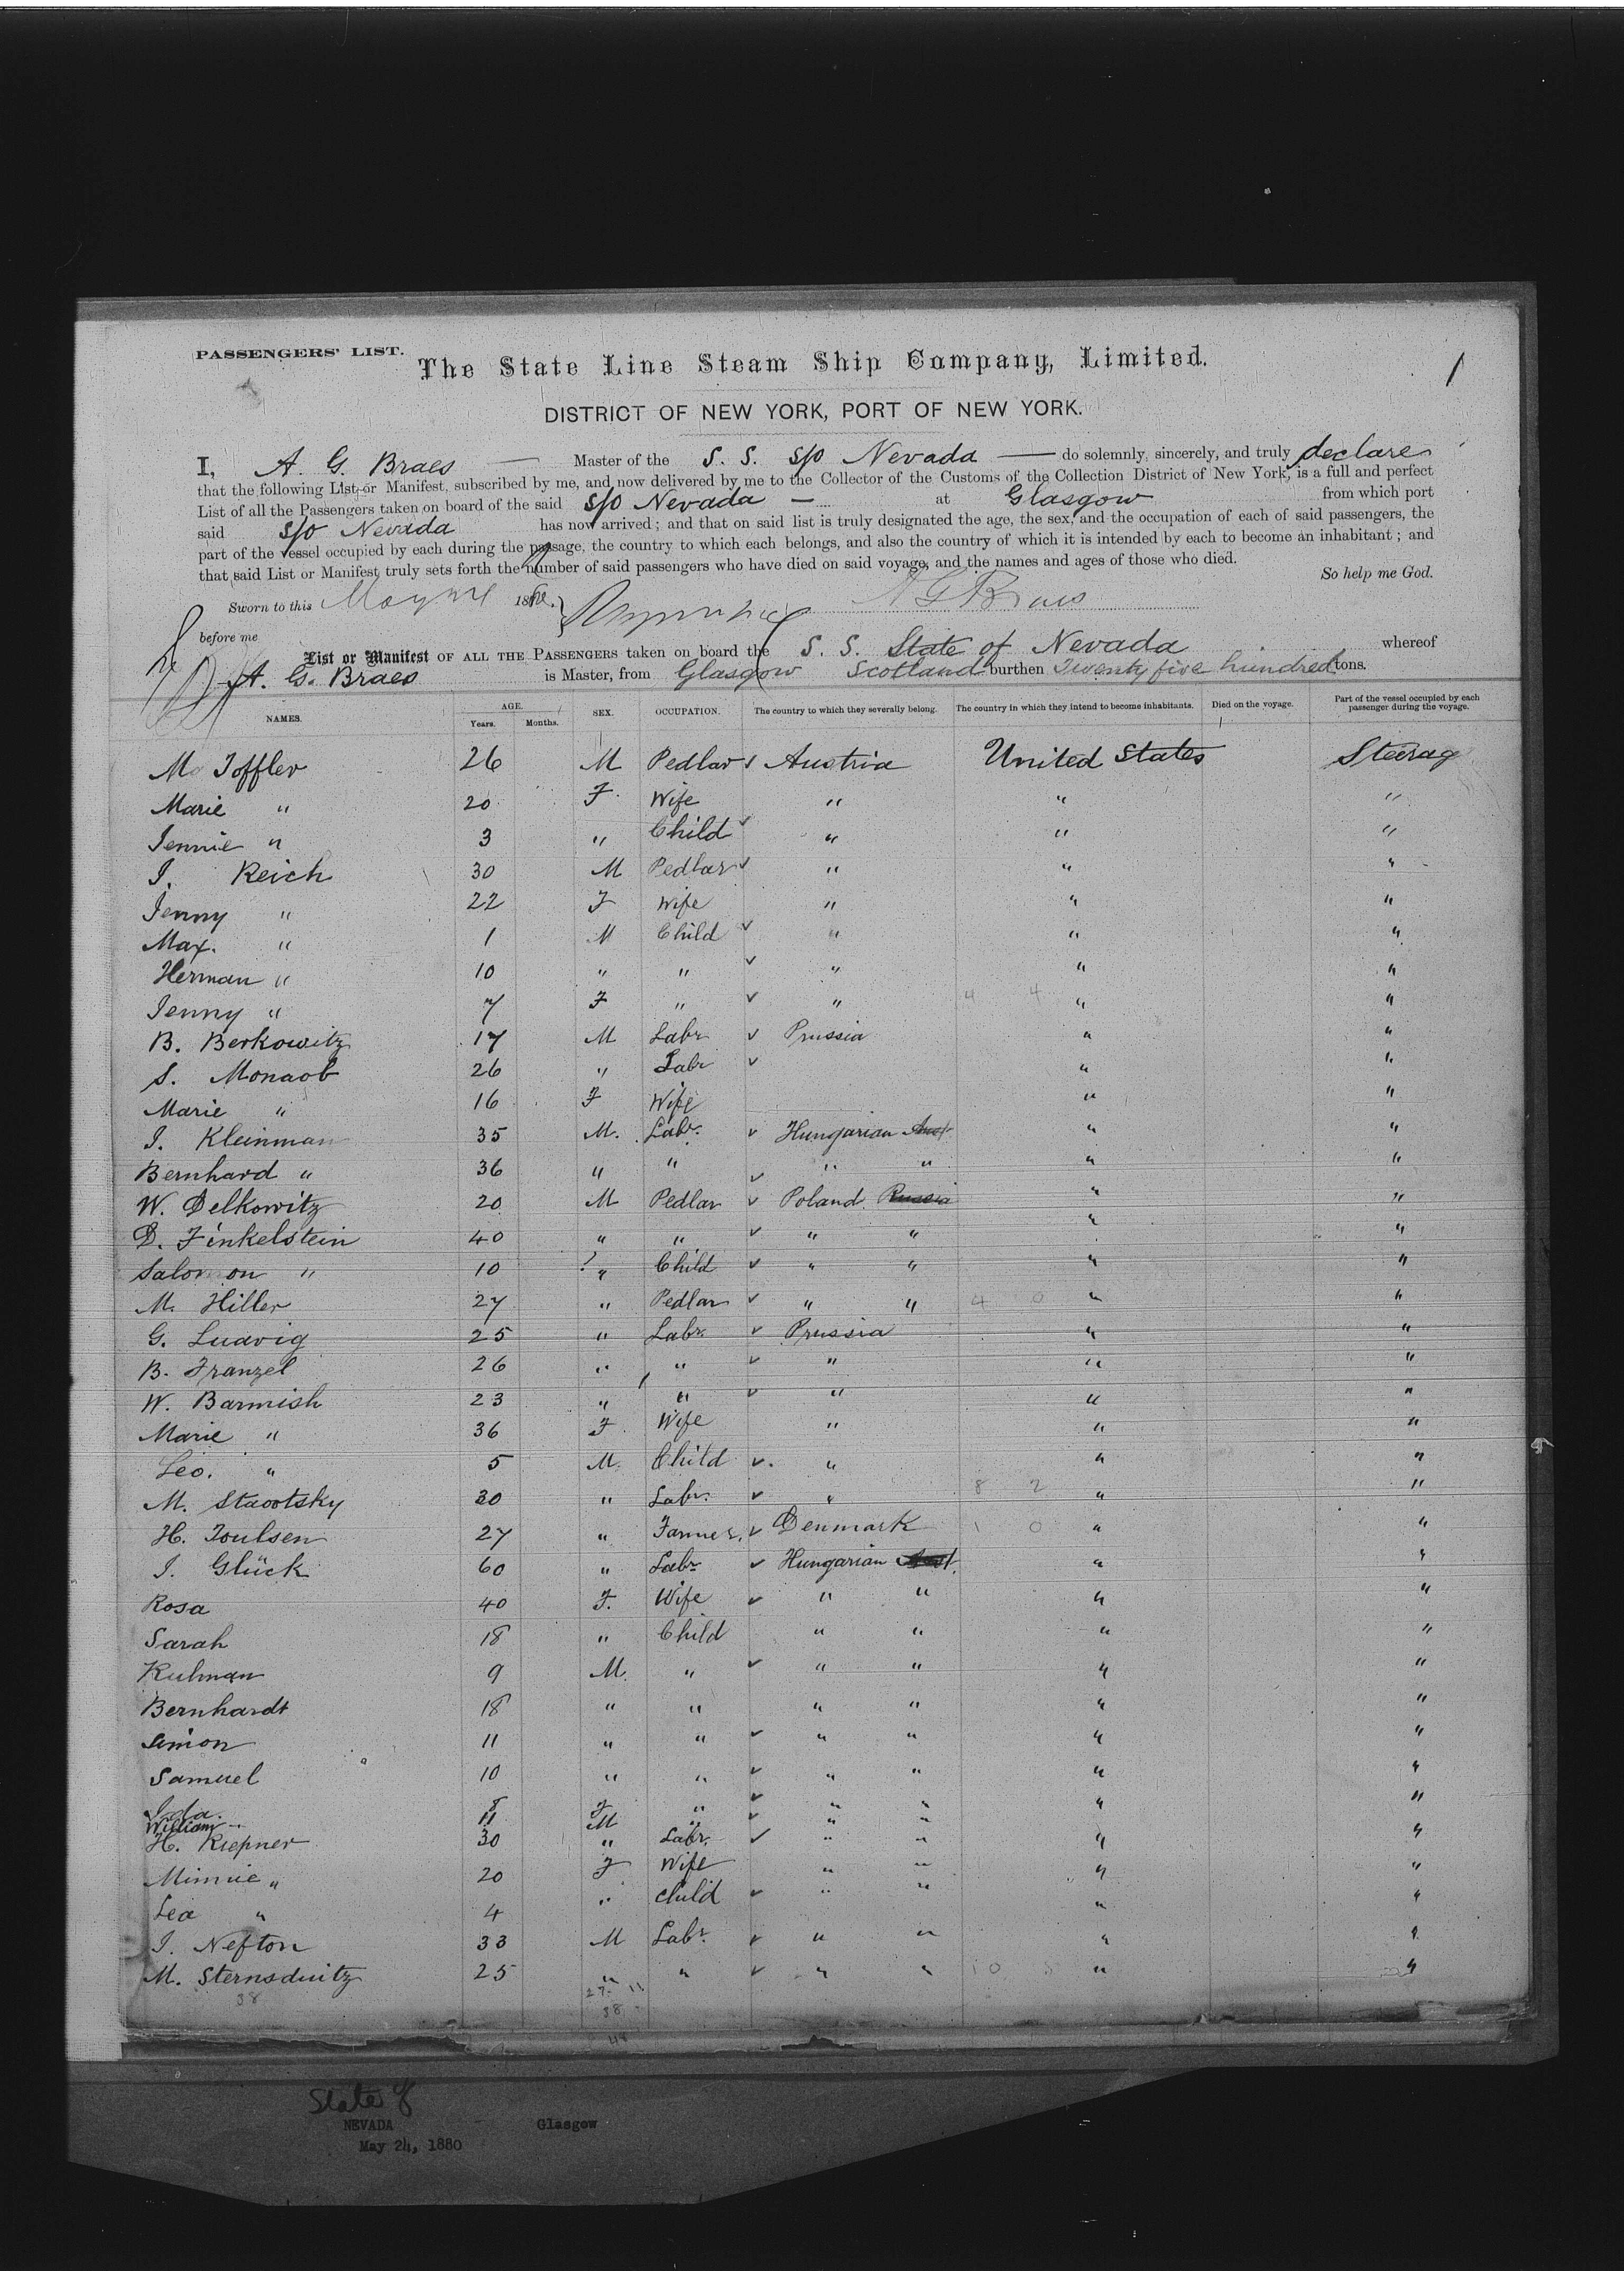 PASSENGERS' LIST.
The State Line Steam Ship Company, Limited.
1
DISTRICT OF NEW YORK, PORT OF NEW YORK.
I, A. G. Braes — Master of the S. S. S/o Nevada — do solemnly, sincerely, and truly declare
that the following List or Manifest, subscribed by me, and now delivered by me to the Collector of the Customs of the Collection District of New York, is a full and perfect
List of all the Passengers taken on board of the said S/o Nevada — at Glasgow from which port
said S/o Nevada has now arrived; and that on said list is truly designated the age, the sex, and the occupation of each of said passengers, the
part of the vessel occupied by each during the passage, the country to which each belongs, and also the country of which it is intended by each to become an inhabitant; and
that said List or Manifest truly sets forth the number of said passengers who have died on said voyage, and the names and ages of those who died.
So help me God.
Sworn to this May 24 1880. A G Braes
before me
List or Manifest OF ALL THE PASSENGERS taken on board the S. S. State of Nevada whereof
A. G. Braes is Master, from Glasgow Scotland burthen Twenty five hundred tons.
NAMES. AGE. Years. Months. SEX. OCCUPATION. The country to which they severally belong. The country in which they intend to become inhabitants. Died on the voyage. Part of the vessel occupied by each passenger during the voyage.
M Toffler 26 M Pedlar ✓ Austria United States Steerag
Marie " 20 F. Wife " " "
Jennie " 3 " Child ✓ " " "
I. Reich 30 M Pedlar ✓ " " "
Jenny " 22 F Wife " " "
Max. " 1 M Child ✓ " " "
Herman " 10 " " ✓ " " "
Jenny " 7 F " ✓ " 4 4 " "
B. Berkowitz 17 M Labr ✓ Prussia " "
S. Monaob 26 " Labr ✓ " "
Marie " 16 F Wife " "
I. Kleinman 35 M. Labr. ✓ Hungarian Aust. " "
Bernhard " 36 " " ✓ " " " "
W. Delkowitz 20 M Pedlar ✓ Poland Russia " "
D. Finkelstein 40 " " ✓ " " " "
Salomon " 10 " Child ✓ " " " "
M. Hiller 27 " Pedlar ✓ " " 4 0 " "
G. Ludvig 25 " Labr. ✓ Prussia " "
B. Franzel 26 " " ✓ " " "
W. Barmish 23 " " ✓ " " "
Marie " 36 F. Wife " " "
Leo. " 5 M. Child ✓ " " "
M. Stavotsky 30 " Labr. ✓ " 8 2 " "
H. Toulsen 27 " Farmer. ✓ Denmark 1 0 " "
I. Glück 60 " Labr ✓ Hungarian Aust. " "
Rosa 40 F. Wife ✓ " " " "
Sarah 18 " Child " " " "
Kulman 9 M. " ✓ " " " "
Bernhardt 18 " " " " " "
Simon 11 " " ✓ " " " "
Samuel 10 " " ✓ " " " "
Ida. 8 F " ✓ " " " "
William 11 M " ✓ " "
H. Kiepner 30 " Labr. ✓ " " " "
Minnie " 20 F Wife " " " "
Lea " 4 " Child ✓ " " " "
I. Nefton 33 M Labr. ✓ " " " "
M. Sternsduitz 25 " " ✓ " " 10 5 " "
38 27 11
38
State of
NEVADA Glasgow
May 24, 1880